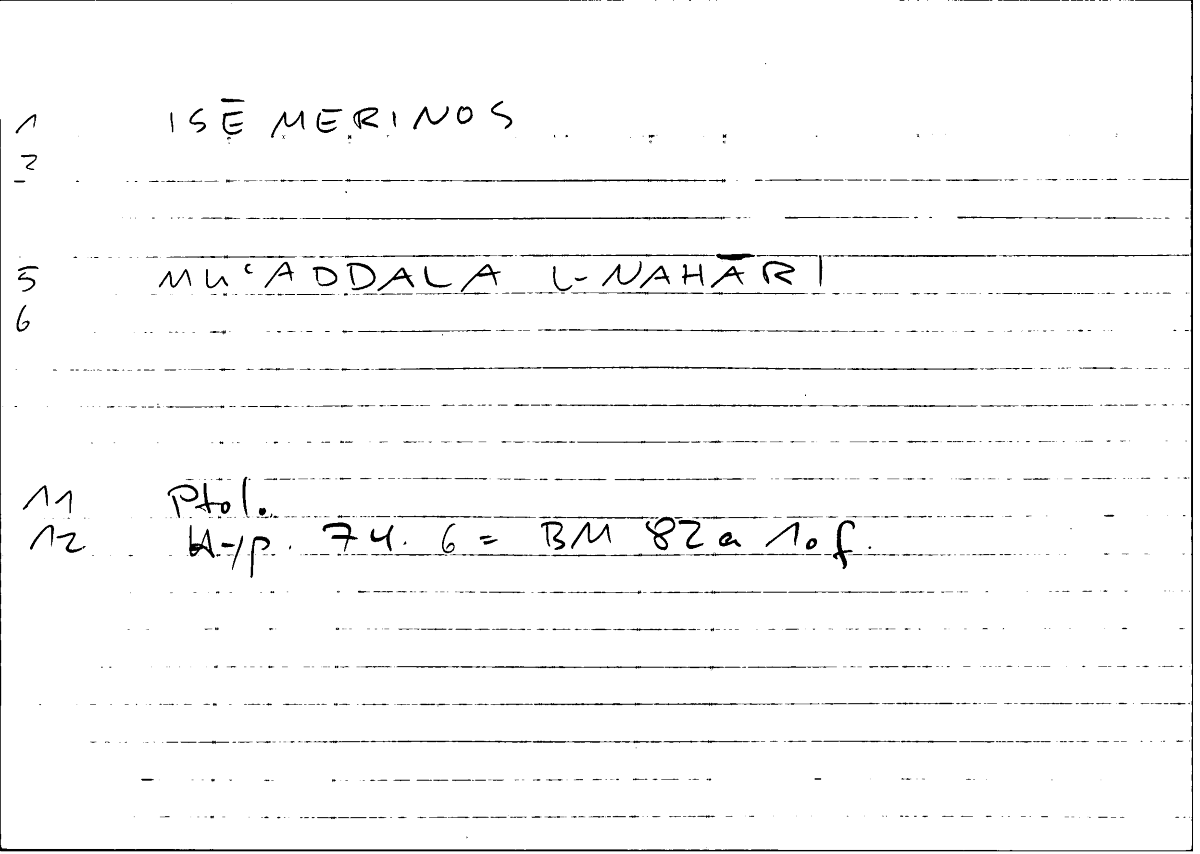 1 ISĒMERINOS
2
5 MUʿADDALA L-NAHĀRI
6
11 Ptol.
12 Hyp. 74. 6 = BM 82a 10f.